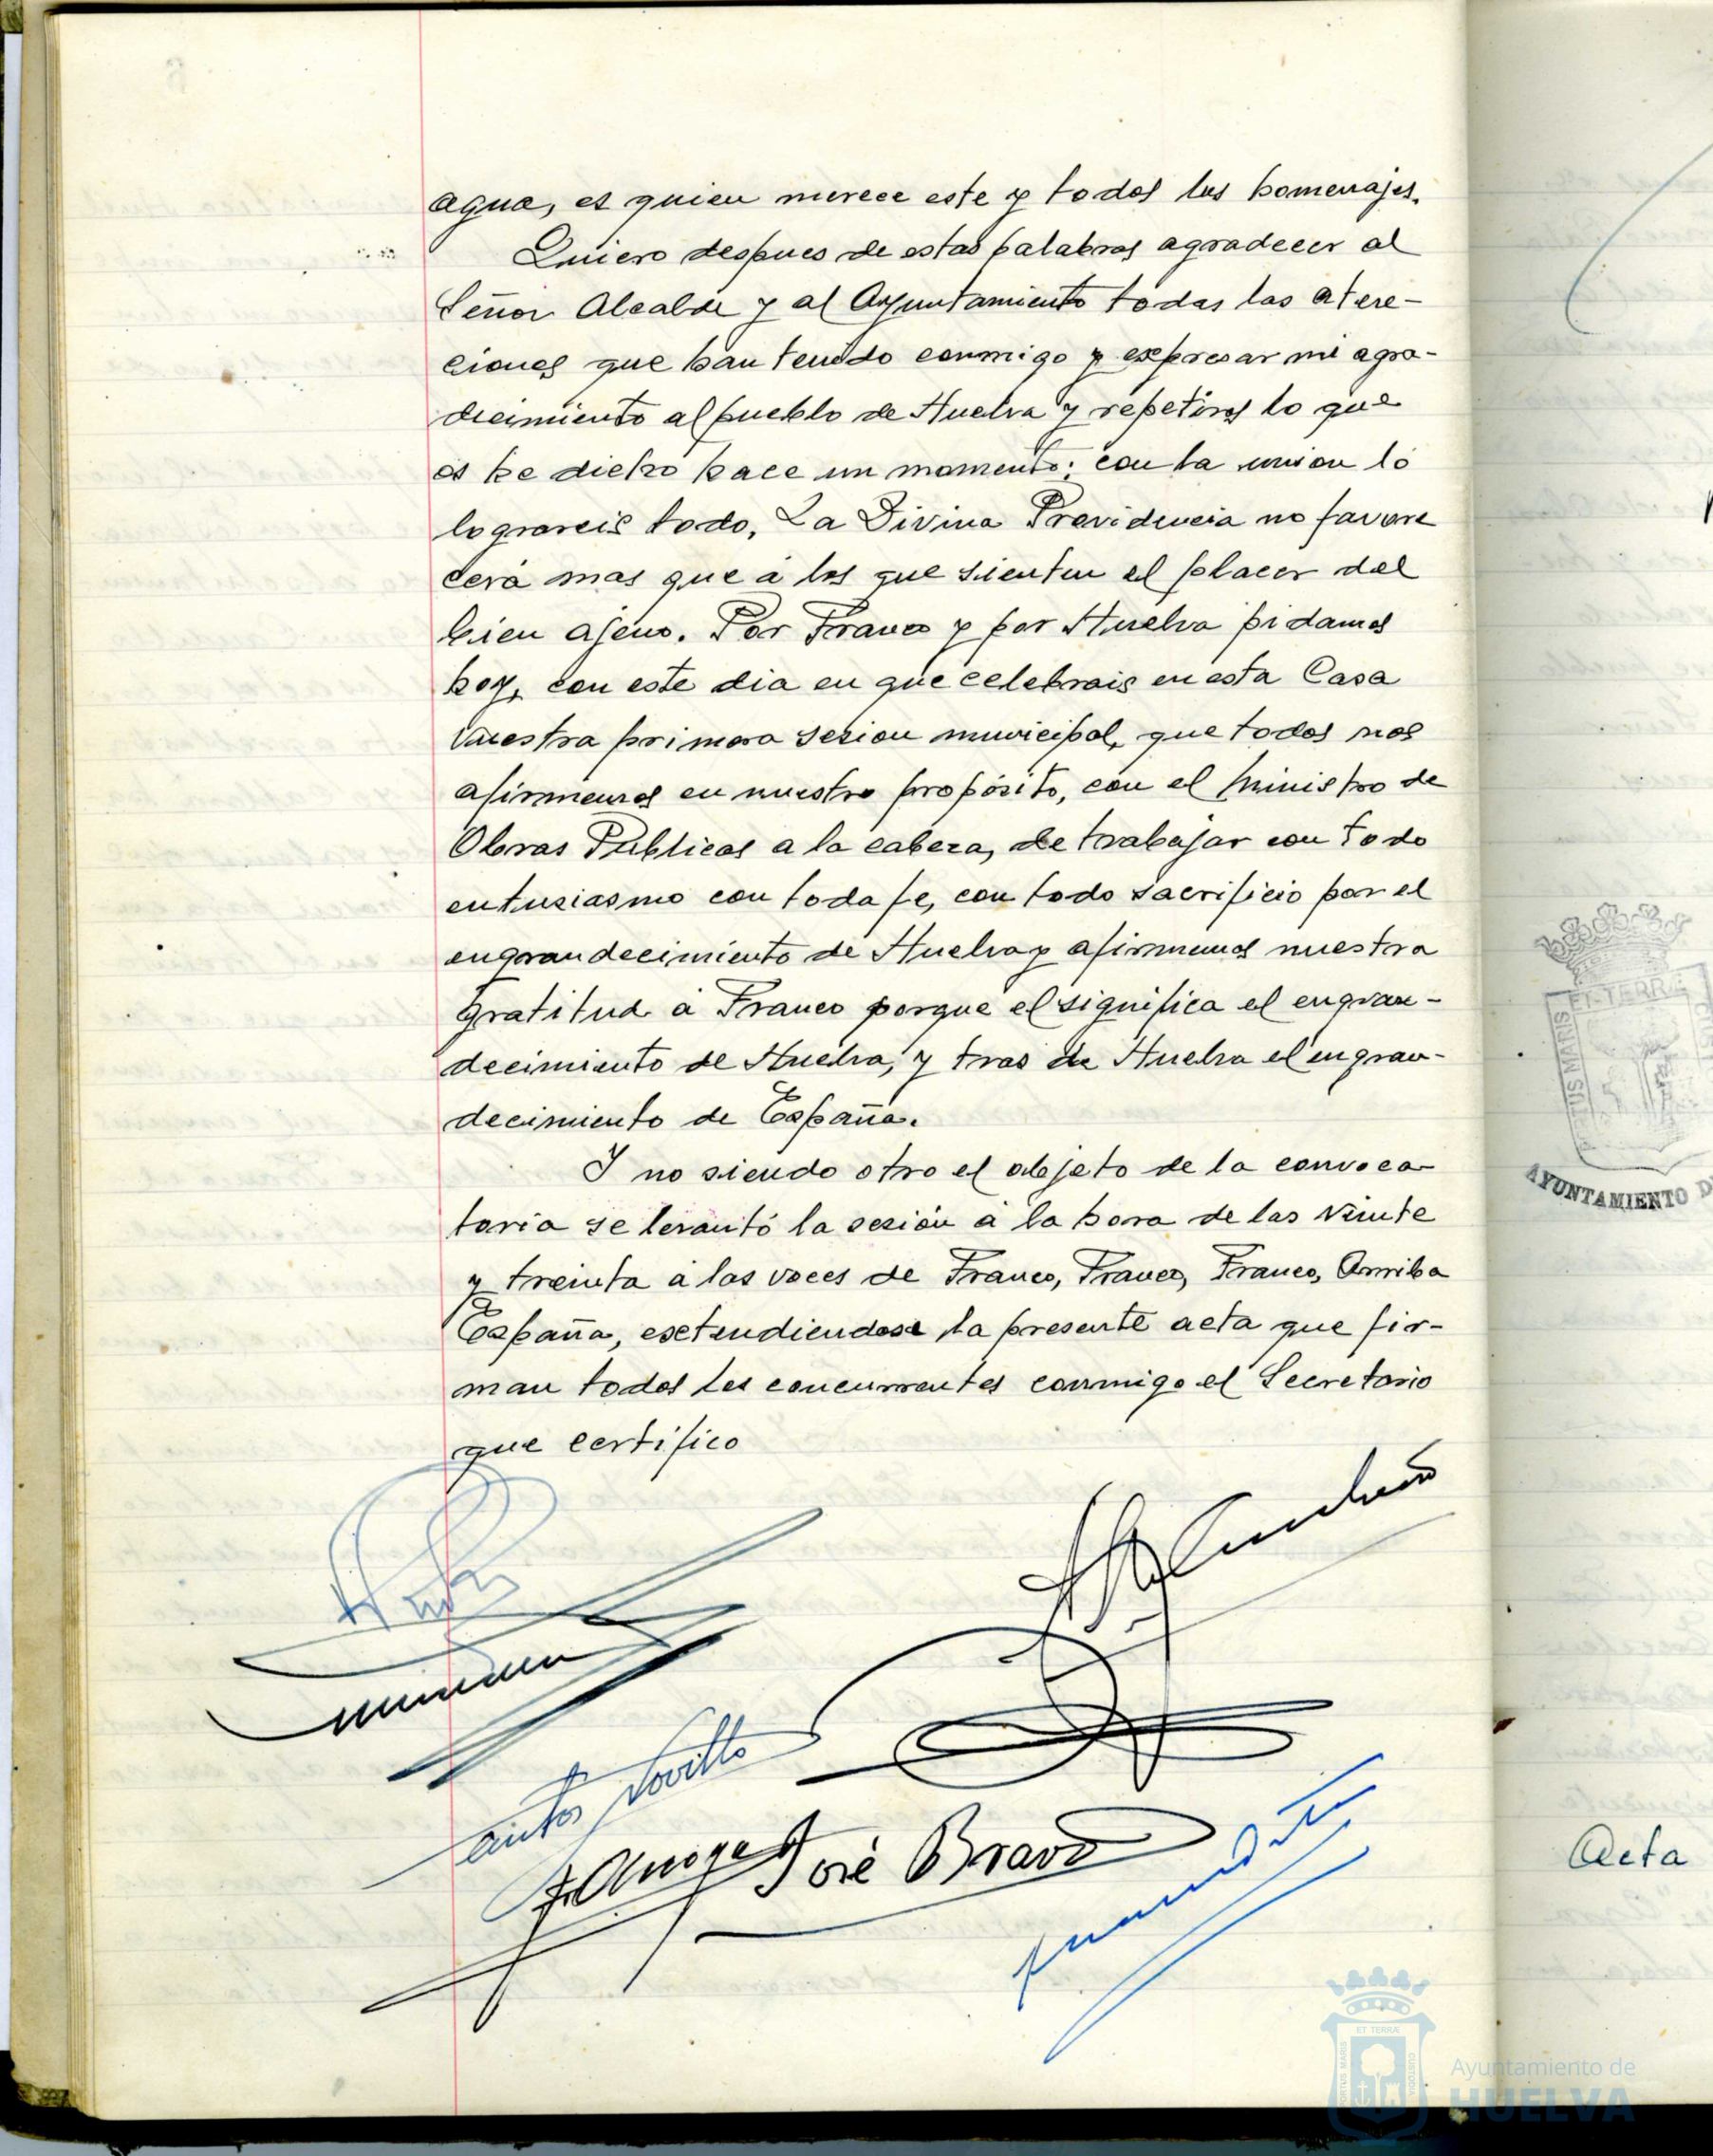 agua, es quien merece este y todos los homenajes.
Quiero despues de estas palabras agradecer al
Señor Alcalde y al Ayuntamiento todas las aten-
ciones que han tenido conmigo y expresar mi agra-
decimiento al pueblo de Huelva y repetiros lo que
os he dicho hace un momento: con la union lo
lograreis todo, La Divina Providencia no favore
cerá mas que á los que sienten el placer del
bien ajeno. Por Franco y por Huelva pidamos
hoy, con este dia en que celebrais en esta Casa
vuestra primera sesion municipal, que todos nos
afirmemos en nuestro propósito, con el Ministro de
Obras Publicas a la cabeza, de trabajar con todo
entusiasmo con toda fe, con todo sacrificio por el
engrandecimiento de Huelva y afirmemos nuestra
gratitud á Franco porque el significa el engran-
decimiento de Huelva, y tras de Huelva el engran-
decimiento de España.
Y no siendo otro el objeto de la convoca-
toria se levantó la sesión á la hora de las veinte
y treinta á las voces de Franco, Franco, Franco, Arriba
España, extendiendose la presente acta que fir-
man todos los concurrentes conmigo el Secretario
que certifico
José Bravo
ET TERRÆ
AYUNTAMIENTO D
Acta
Ayuntamiento de
HUELVA